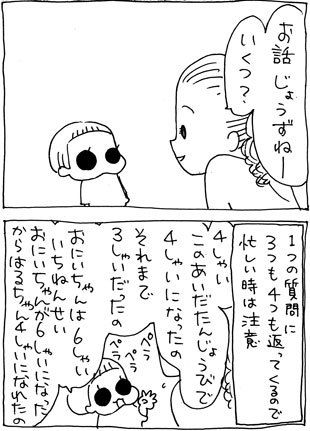 お話
じょうずねー
いくつ？
1つの質問に
3つも4つも返ってくるので
忙しい時は注意
4しゃい
このあいだたんじょうびで
4しゃいになったの
それまで
3しゃいだったの
おにいちゃんは6しゃい
いちねんせい
おにいちゃんが6しゃいになった
からはるちゃん4しゃいになれたの
ペラ
ペラ
ペラ